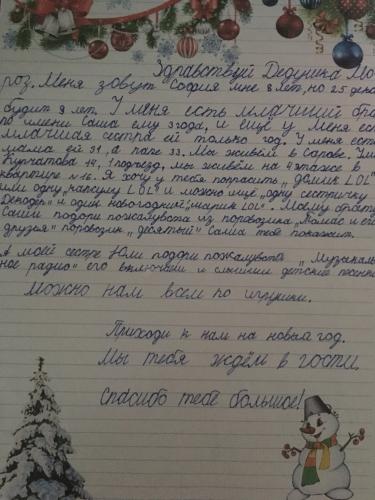 Здравствуй Дедушка Мо
роз. Меня зовут София мне 8 лет, но 25 дека
будит 9 лет. У меня есть младший бра
по имени Саша ему 3 года, и ещё у меня ес
младшая сестра ей только год. У меня ест
мама ей 31, а папе 33. Мы живём в Сарове. Ули
Курчатова 14, 1 подъезд, мы живём на 4 этаже в
квартире №16. Я хочу у тебя попрасить „ Домик LOL"
или одну „капсулу LOL" и можно ещё „одну сестричку
Декодер" и один новогодний „шарик LOL". Моему брату
Саши подори пожалувста из поровозика „Томас и его
друзья" поровозик „десятый" Саша тебе покажит.
А моей сестре Юли подори пожалувста „Музыкаль
ное радио" его включаеш и слышиш детские песенки
Можно нам всем по игрушки.
Приходи к нам на новый год.
Мы тебя ждём в гости.
Спасибо тебе большое!